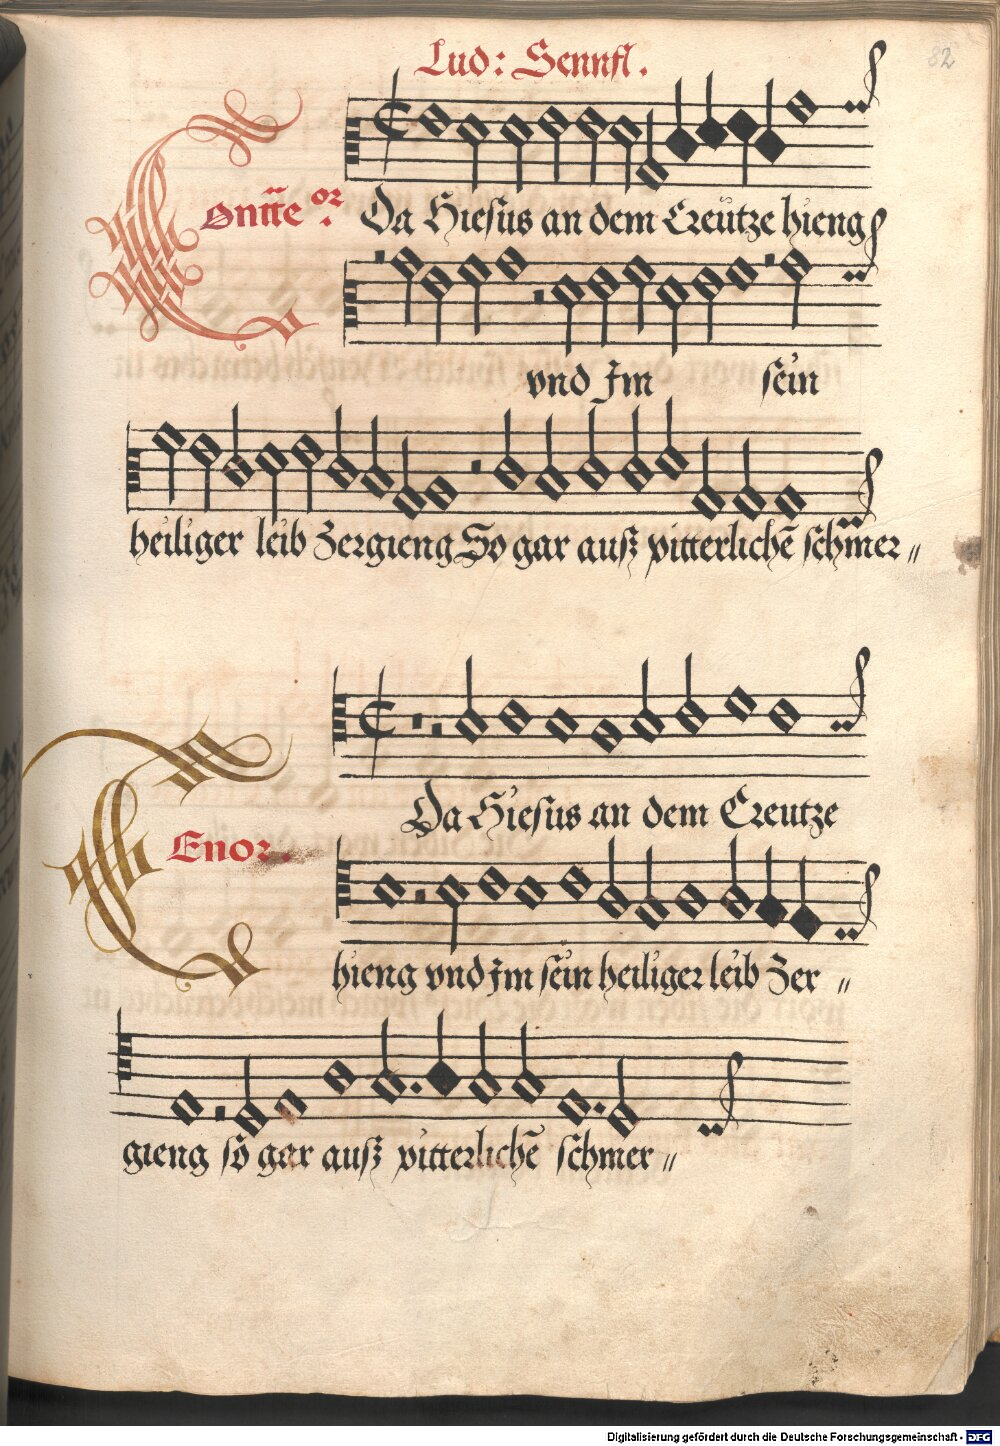 82
Lud: Sennfl.
Contte or.
Da Hiesus an dem Creütze hieng
vnd Im sein
heiliger leib Zergieng So gar auß pitterlichē schmer〃
Da Hiesus an dem Creutze
Tenor.
hieng vnd Im sein heiliger leib Zer〃
gieng so gar auß pitterlichē schmer〃
Digitalisierung gefördert durch die Deutsche Forschungsgemeinschaft - DFG